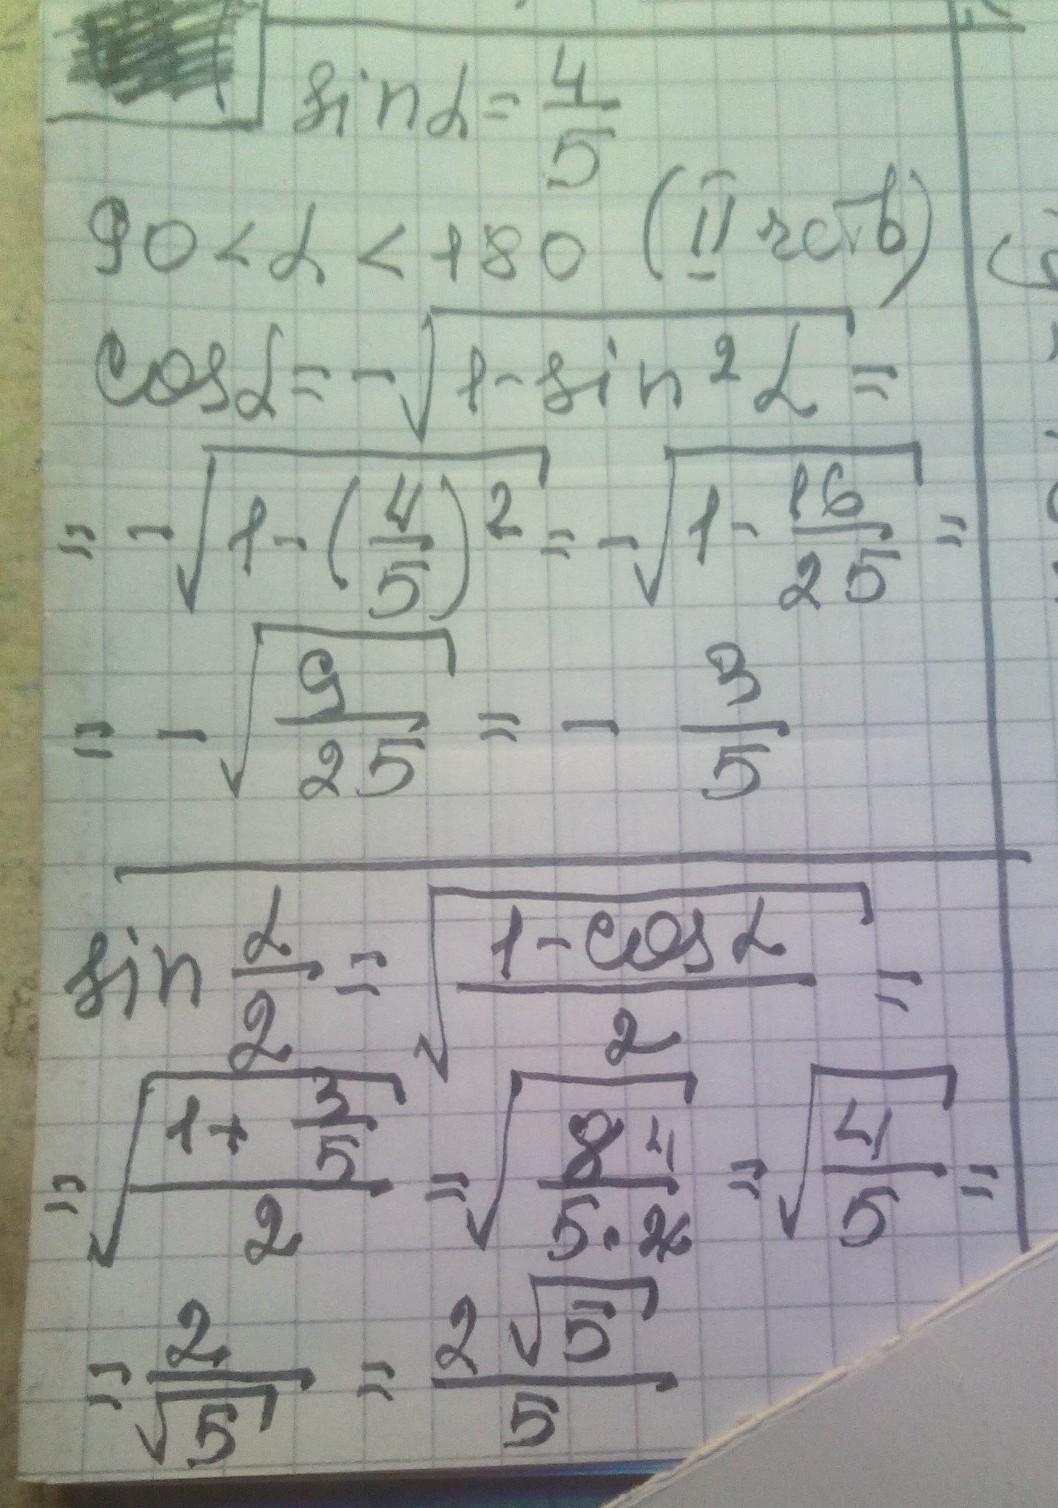 sin α = 4/5
90 < α < 180 (II чсть)
cos α = -√(1 - sin² α) =
= -√(1 - (4/5)²) = -√(1 - 16/25) =
= -√(9/25) = - 3/5
sin α/2 = √((1 - cos α)/2) =
= √((1 + 3/5)/2) = √(8 4/5·2) = √(4/5) =
= 2/√5 = 2√5/5